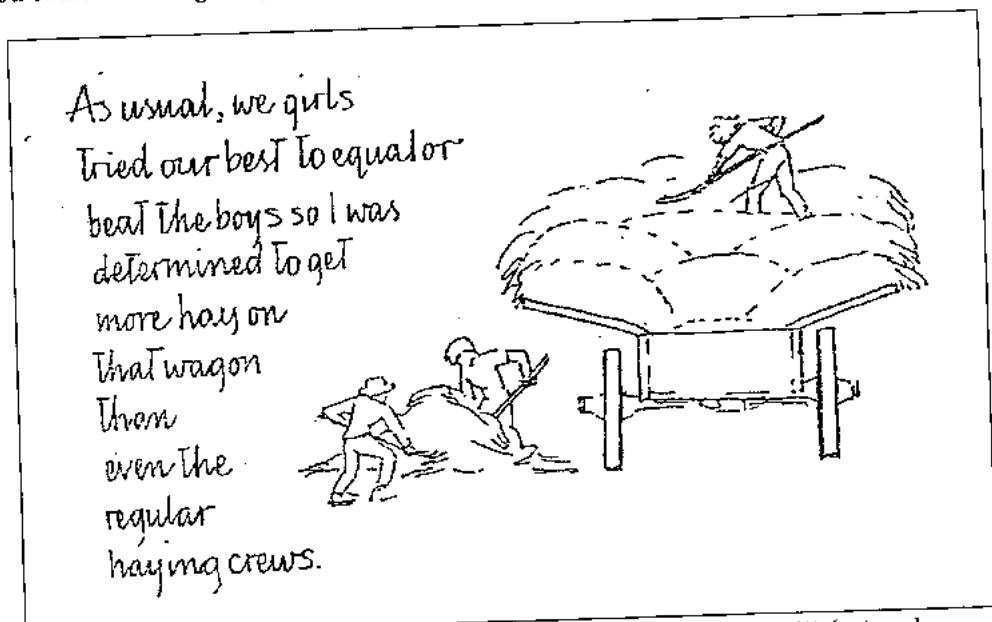 As usual, we girls
tried our best to equal or
beat the boys so I was
determined to get
more hay on
that wagon
than
even the
regular
haying crews.